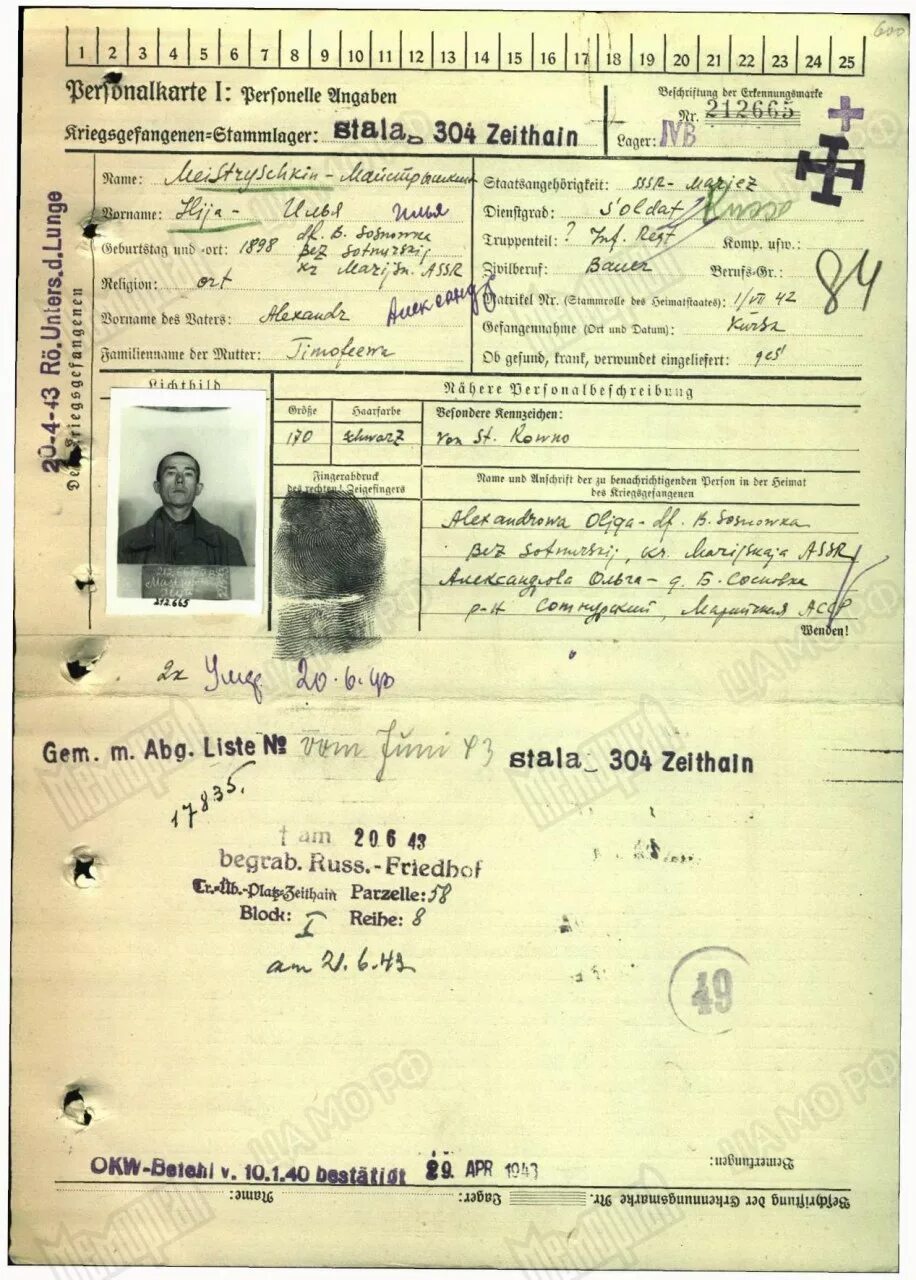 600
1 2 3 4 5 6 7 8 9 10 11 12 13 14 15 16 17 18 19 20 21 22 23 24 25
Personalkarte I: Personelle Angaben
Beschriftung der Erkennungsmarke
Nr. 212665
Kriegsgefangenen-Stammlager: stala 304 Zeithain
Lager: IVB
Name: Meistryschkin - Майстрышкин
Staatsangehörigkeit: SSSR - Mariez
Vorname: Ilja - Илья Илья
Dienstgrad: Soldat
Geburtstag und -ort: 1898 df. B. Sosnowka
Bez Sotnurskij
kr Marijsk. ASSR
Truppenteil: ? Inf. Regt Komp. usw.:
Religion: ort
Zivilberuf: Bauer Berufs-Gr.:
84
Vorname des Vaters: Alexandr Александр
Matrikel Nr. (Stammrolle des Heimatstaates): 1/VII 42
Gefangennahme (Ort und Datum): Kursk
Familienname der Mutter: Timofeewa
Ob gesund, krank, verwundet eingeliefert: ges
20-4-43 Rö. Unters.d.Lunge
Des Kriegsgefangenen
Lichtbild
Nähere Personalbeschreibung
Größe Haarfarbe Besondere Kennzeichen:
170 schwarz von St. Kowno
Fingerabdruck
des rechten! Zeigefingers
Name und Anschrift der zu benachrichtigenden Person in der Heimat
des Kriegsgefangenen
Alexandrowa Oljga - df. B. Sosnowka
Bez Sotnurskij, kr. Marijskaja ASSR
Александрова Ольга - д. Б. Сосновка
р-н Сотнурский, Марийская АССР
212.665
Wenden!
2х Умер 20.6.43
Gem. m. Abg. Liste № vom Juni 43 stala 304 Zeithain
17835.
† am 20 6 43
begrab. Russ.-Friedhof
Tr.-Üb.-Platz Zeithain Parzelle: 58
Block: I Reihe: 8
am 21.6.43
49
OKW-Befehl v. 10.1.40 bestätigt 29. APR 1943
Bemerkungen:
Name: Lager: Beschriftung der Erkennungsmarke Nr.
Мемориал
ЦАМО РФ